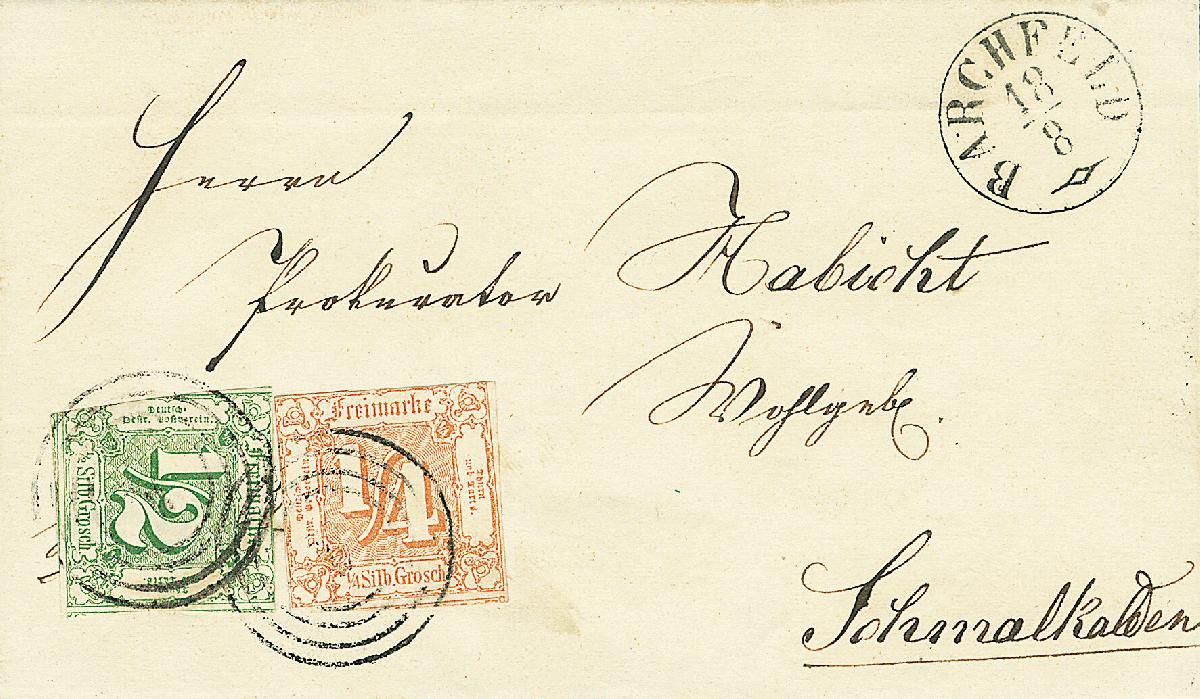 BARCHFELD
18/8
Herrn
Prokurator Habicht
Wohlgeb.
Schmalkalden
Deutsch-
Oestr. Postverein.
Freimarke
1/2
1/2 Silb. Grosch.
Freimarke
Thurn
und Taxis
1/4
1/4 Silb. Grosch.